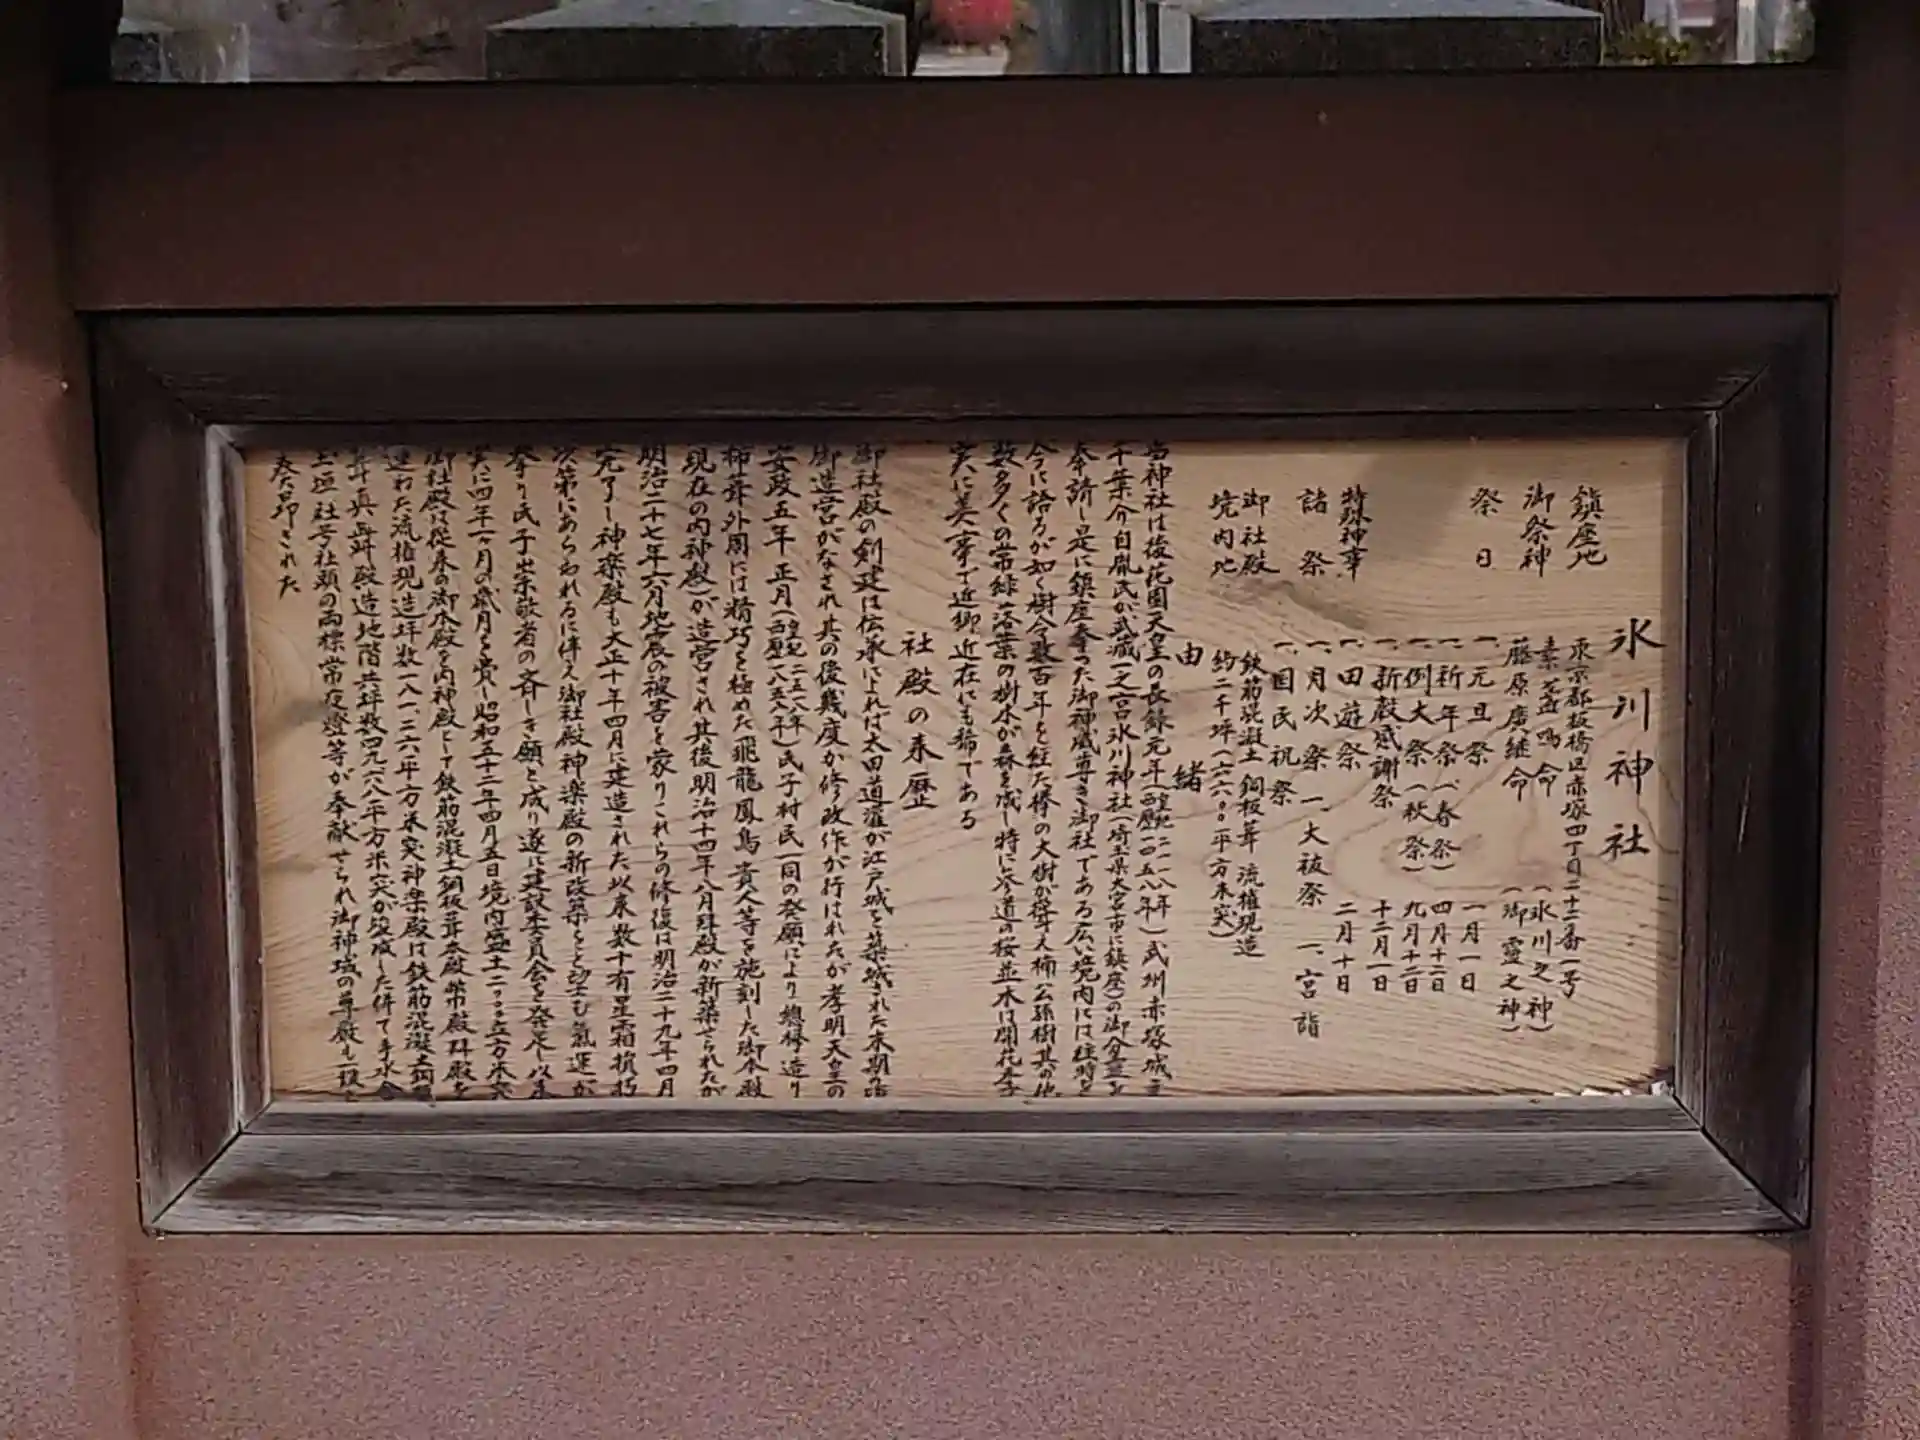 氷川神社
鎮座地 東京都板橋区赤塚四丁目二十二番一号
御祭神 素盞嗚命 (氷川之神)
藤原広継命 (御霊之神)
祭日 一、元旦祭 一月一日
一、祈年祭(春祭) 四月十二日
一、例大祭(秋祭) 九月十二日
一、新穀感謝祭 十二月一日
特殊神事 一、田遊祭 二月十日
諸祭 一、月次祭 一、大祓祭 一、宮詣
一、国民祝祭
御社殿 鉄筋混凝土銅板葺 流権現造
境内地 約二千坪(六六〇〇平方米突)
由緒
当神社は後花園天皇の長録元年(皇紀二一一八年 西暦一四五八年)武州赤塚城主
千葉介自胤氏が武蔵一之宮氷川神社(埼玉県大宮市に鎮座)の御分霊を
奉請し是に鎮座奉った御神威尊き御社である広い境内には往時を
今に語るが如く樹令数百年を経た欅の大樹が聳え楠公孫樹其の他
数多くの常緑落葉の樹木が森を成し特に参道の桜並木は開花季
実に美事で近郷近在にも稀である
社殿の来歴
御社殿の創建は伝承によれば太田道潅が江戸城を築城された末期の
御造営がなされ其の後幾度か修改作が行はれたが孝明天皇の
安政五年正月(皇紀二五一八年 西歴一八五八年)氏子村民一同の発願により総欅造り
柿葺外周には精巧を極めた飛龍鳳鳥貴人等を施刻した御本殿
(現在の内神殿)が造営され其後明治十四年八月拝殿が新築せられたが
明治二十七年六月地震の被害を蒙りこれらの修復は明治二十九年四月
完了し神楽殿も大正十年四月に建造された以来数十有星霜損朽
次第にあらわれるに伴え御社殿神楽殿の新改築をと望む氣運が
挙り氏子崇敬者の斉しき願と成り遂に建設委員会を発足し以来
実に四年一ヶ月の歳月を費し昭和五十二年四月五日境内盛土二〇〇〇立方米突
御社殿は従来の御本殿を内神殿として鉄筋混凝土銅板葺本殿幣殿拝殿を
連ねた流権現造坪数一八一・三六平方米突神楽殿は鉄筋混凝土銅板
葺真舞殿造地階共坪数四九・六八平方米突が竣成した併て手水舎
玉垣社号社頭の両標常夜燈等が奉献せられ御神域の尊厳も一段と
奉昂された